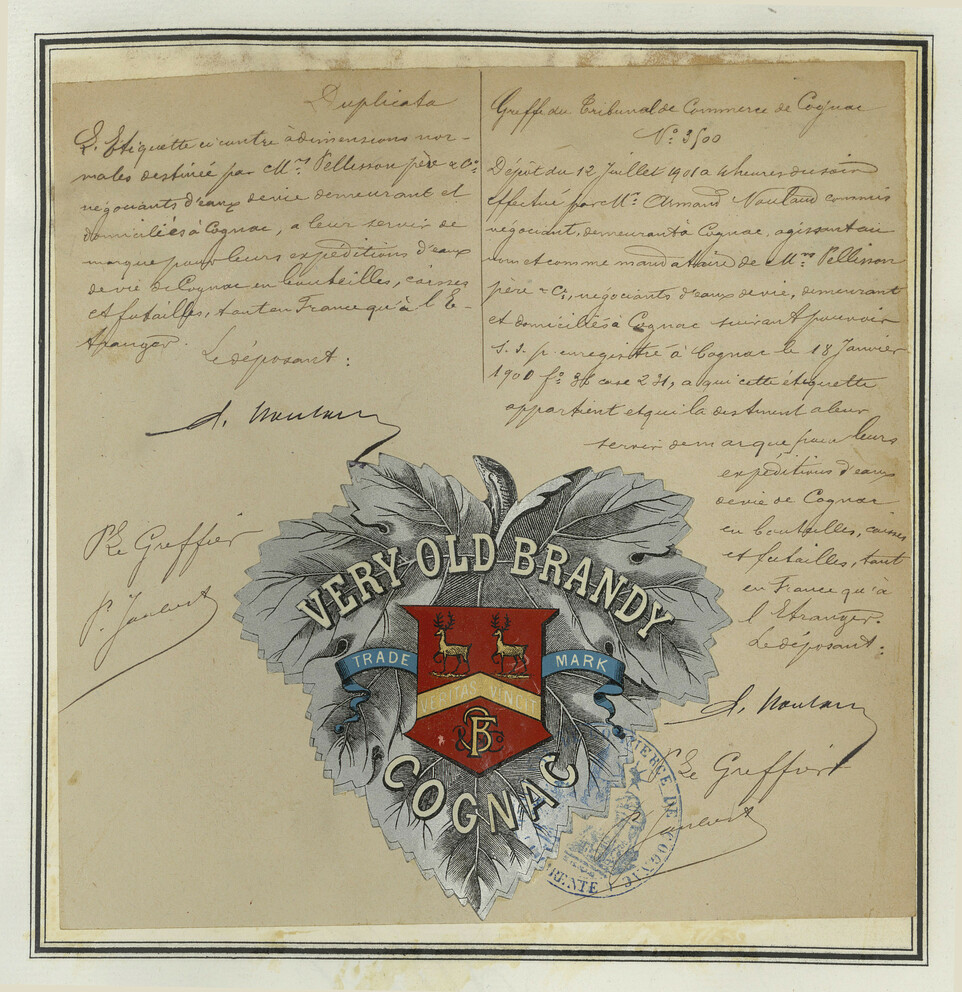 Duplicata
L'Etiquette ci contre à dimensions nor-
males destinée par Mrs Pellisson père & Cie
négociants d'eaux de vie demeurant et
domiciliés à Cognac, a leur servir de
marque pour leurs expéditions d'eaux
de vie de Cognac en bouteilles, caisses
et futailles, tant en France qu'à l'E-
tranger.
Le déposant:
Pr Le Greffier
P. Jaubert
Greffe du Tribunal de Commerce de Cognac
No 3500
Dépôt du 12 Juillet 1901 a 4 heures du soir
effectué par Mr Armand Naulaud commis
négociant, demeurant à Cognac, agissant au
nom et comme mandataire de Mrs Pellisson
père & Cie, négociants d'eaux de vie, demeurant
et domiciliés à Cognac suivant pouvoir
S. S. p. enregistré à Cognac le 18 Janvier
1901 fo 38 case 231, a qui cette étiquette
appartient et qui la destinent a leur
servir de marque pour leurs
expéditions d'eaux
de vie de Cognac
en bouteilles, caisses
et futailles, tant
en France qu'à
l'Etranger.
Le déposant:
Pr Le Greffier
P. Jaubert
VERY OLD BRANDY
TRADE MARK
VERITAS VINCIT
COGNAC
MERCE DE COGNAC
RENTE